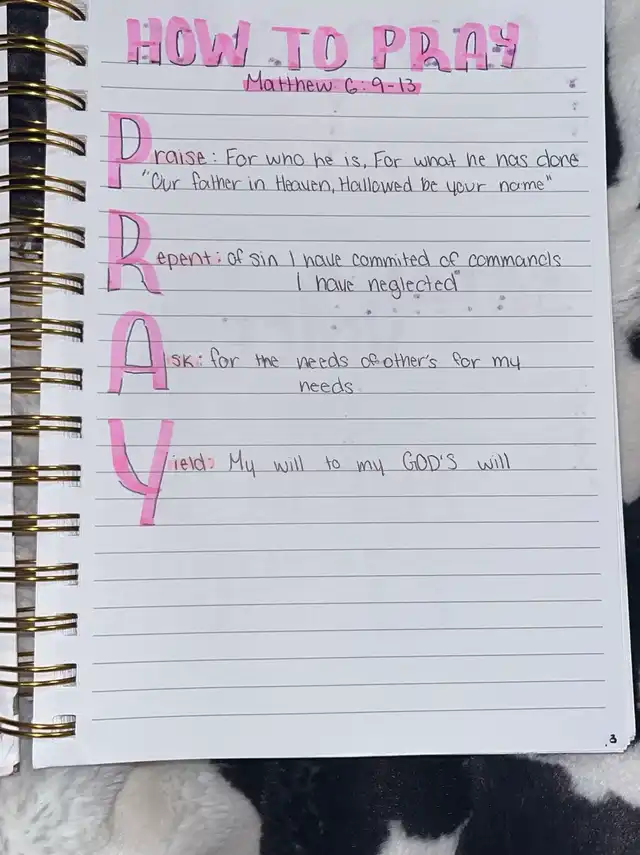 HOW TO PRAY
Matthew 6:9-13
Praise: For who he is, For what he has done
"Our father in Heaven, Hallowed be your name"
Repent: of sin I have commited of commands
I have neglected"
Ask: for the needs of other's for my
needs.
Yield: My will to my GOD'S will
3